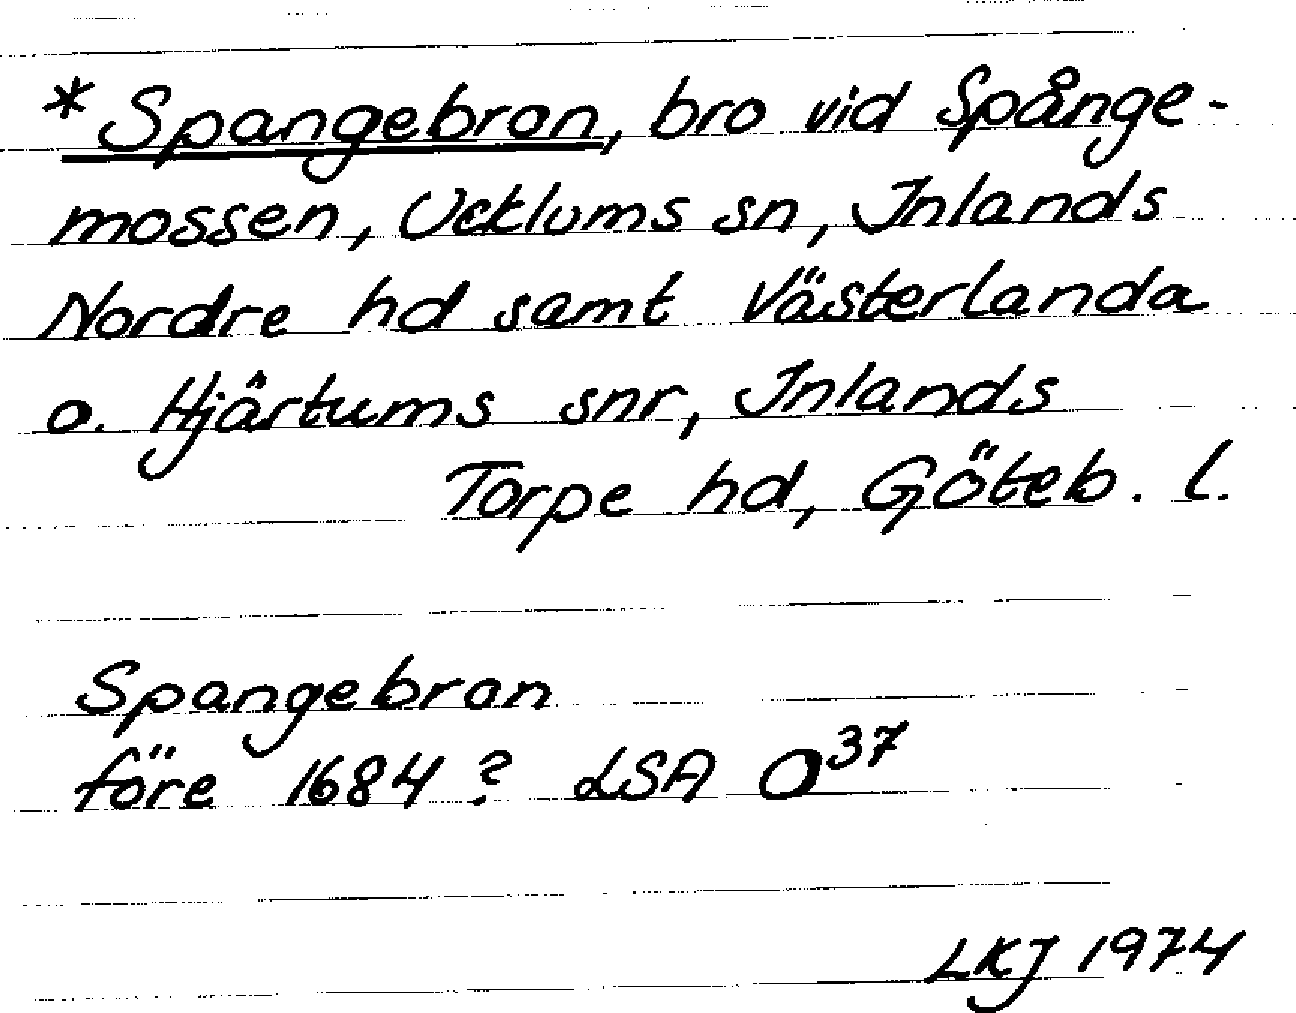 *Spangebron, bro vid Spånge-
mossen, Ucklums sn, Inlands
Nordre hd samt Västerlanda
o. Hjärtums snr, Inlands
Torpe hd, Göteb. l.
Spangebron
före 1684? LSA O³⁷
LKJ 1974